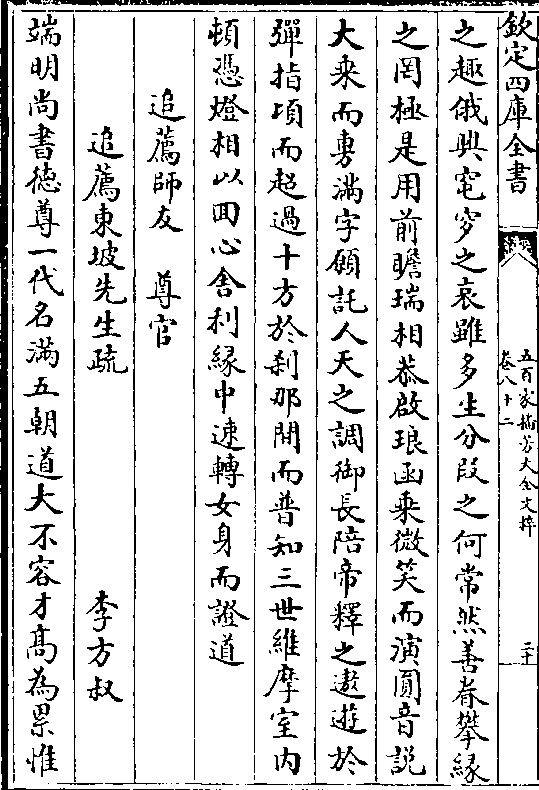 欽定四庫全書
五百家播芳大全文粹
卷八十二
三十
之趣俄興窀穸之哀雖多生分段之何常然善眷攀緣
之罔極是用前瞻瑞相恭啟琅函乗微笑而演圓音説
大乘而旉滿字願託人天之調御長陪帝釋之遨遊於
彈指項而超過十方於刹那間而普知三世維摩室内
頓憑燈相以回心舎利緣中速轉女身而證道
追薦師友　尊官
追薦東坡先生疏　李方叔
端明尚書徳尊一代名滿五朝道大不容才髙為累惟